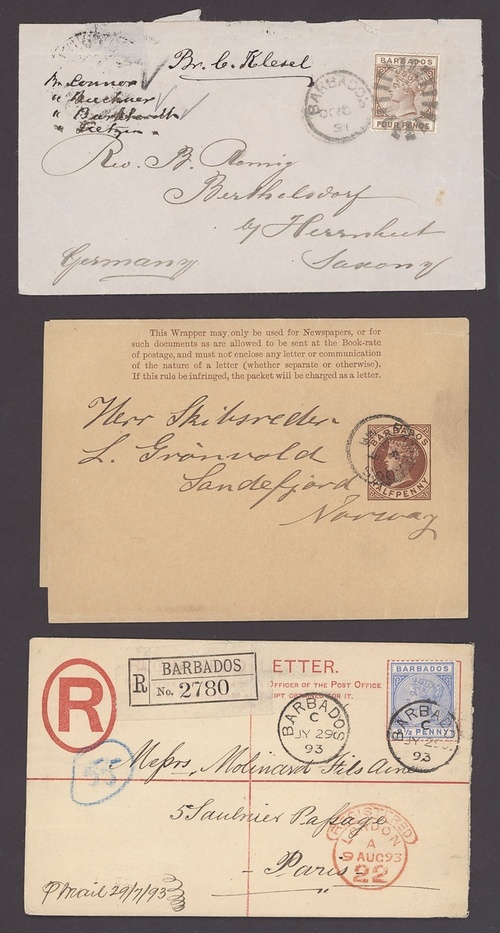 Br. C. Klesel
Br. Connor
" Buchner
" Burkhardt
BARBADOS
91
BARBADOS
FOUR PENCE
Rev. B. Romig
Berthelsdorf
by Herrnhut
Germany
Saxony
This Wrapper may only be used for Newspapers, or for
such documents as are allowed to be sent at the Book-rate
of postage, and must not enclose any letter or communication
of the nature of a letter (whether separate or otherwise).
If this rule be infringed, the packet will be charged as a letter.
BARBADOS
HALFPENNY
Herr Skibsreder
L. Grönvold
Sandefjord
Norway
R
R BARBADOS
No. 2780
ETTER.
OFFICER OF THE POST OFFICE
BARBADOS
½ PENNY
BARBADOS
C
JY 29
93
BARBADOS
C
JY 29
93
55
Messrs. Molinard Fils Ainé
5 Saulnier Passage
Paris
REGISTERED
LONDON
A
9 AUG 93
22
p Mail 29/7/93